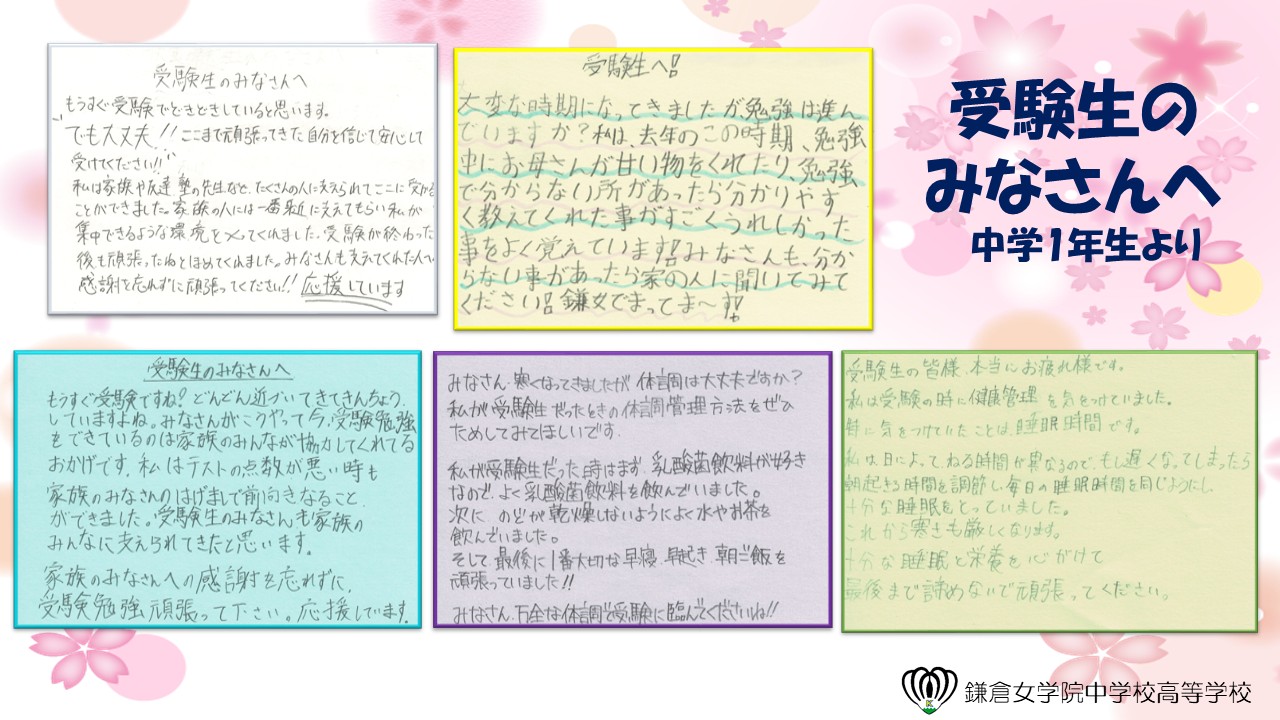 受験生の
みなさんへ
中学1年生より
受験生のみなさんへ
もうすぐ受験でどきどきしていると思います。
でも大丈夫!!ここまで頑張ってきた自分を信じて安心して
受けてください!!
私は家族や友達、塾の先生など、たくさんの人に支えられてここに受かる
ことができました。家族の人には一番近に支えてもらい私が
集中できるような環境をつくってくれました。受験が終わった
後も頑張ったねとほめてくれました。みなさんも支えてくれた人へ
感謝を忘れずに頑張ってください!!応援しています
受験生へ!!
大変な時期になってきましたが勉強は進ん
でいますか?私は、去年のこの時期、勉強
中にお母さんが甘い物をくれたり、勉強
で分からない所があったら分かりやす
く教えてくれた事がすごくうれしかった
事をよく覚えています!!みなさんも、分か
らない事があったら家の人に聞いてみて
ください!!鎌女でまってま〜す!!
受験生のみなさんへ
もうすぐ受験ですね!どんどん近づいてきてきんちょう
していますよね。みなさんがこうやって今、受験勉強
をできているのは家族のみんなが協力してくれてる
おかげです。私はテストの点数が悪い時も
家族のみなさんのはげましで前向きなること
ができました。受験生のみなさんも家族の
みんなに支えられてきたと思います。
家族のみなさんへの感謝を忘れずに、
受験勉強頑張って下さい。応援しています。
みなさん、寒くなってきましたが体調は大丈夫ですか?
私が受験生だったときの体調管理方法をぜひ
ためしてみてほしいです。
私が受験生だった時はまず、乳酸菌飲料が好き
なので、よく乳酸菌飲料を飲んでいました。
次に、のどが乾燥しないようによく水やお茶を
飲んでいました。
そして、最後に1番大切な早寝、早起き、朝ご飯を
頑張っていました!!
みなさん、万全な体調で受験に臨んでくださいね!!
受験生の皆様、本当にお疲れ様です。
私は受験の時に健康管理を気をつけていました。
特に気をつけていたことは、睡眠時間です。
私は日によってねる時間が異なるので、もし遅くなってしまったら
朝起きる時間を調節し、毎日の睡眠時間を同じようにし、
十分な睡眠をとっていました。
これから寒さも厳しくなります。
十分な睡眠と栄養を心がけて
最後まで諦めないで頑張ってください。
鎌倉女学院中学校高等学校